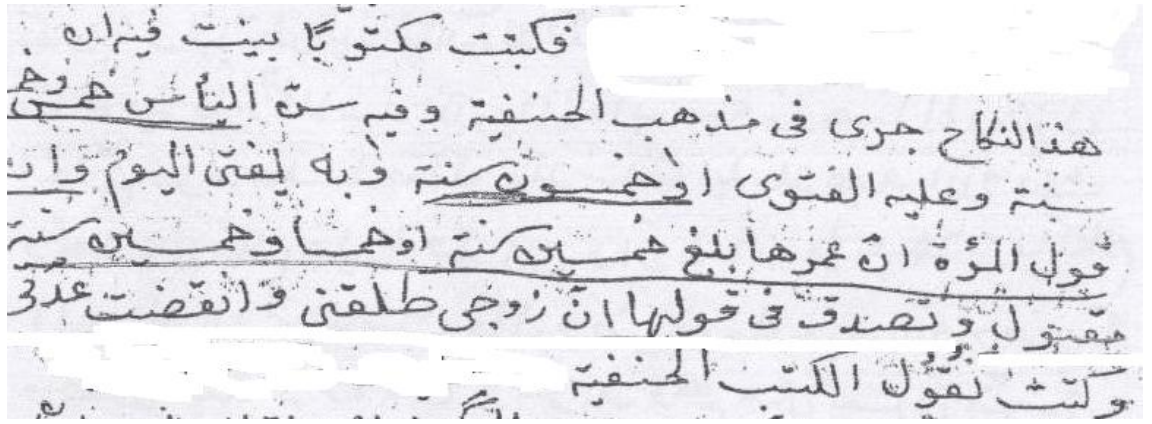 فكتبت مكتوبًا بينت فيه ان
هذ النكاح جرى فى مذهب الحنفية وفيه سن اليأس خمس
سنة وعليه الفتوى اوخمسون سنة وبه يفتى اليوم وان
قول المرؤة انّ عمرها بلغ خمسين سنة اوخمسا وخمسين سنة
مقبول وتصدق فى قولها انّ زوجى طلقنى وانقضت عدتى
وكتبت نقول الكتب الحنفية